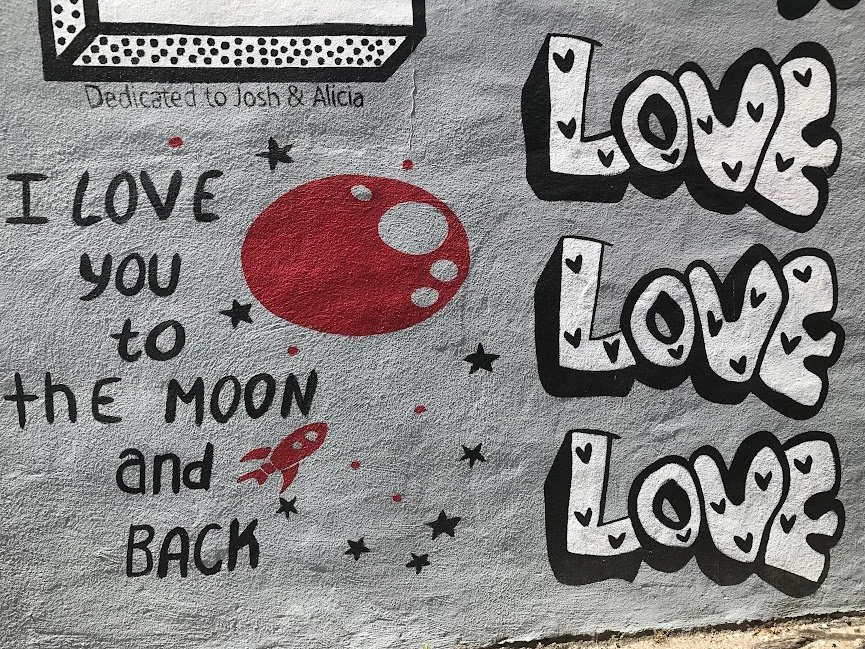 Dedicated to Josh & Alicia
I LOVE
YOU
to
thE MOON
and
BACK
LOVE
LOVE
LOVE